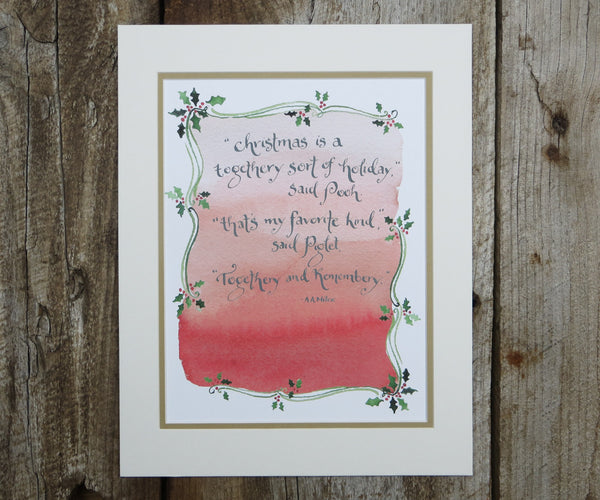 "Christmas is a
togethery sort of holiday,"
said Pooh
"that's my favorite kind,"
said Piglet
"Togethery and Remembery."
-A.A.Milne